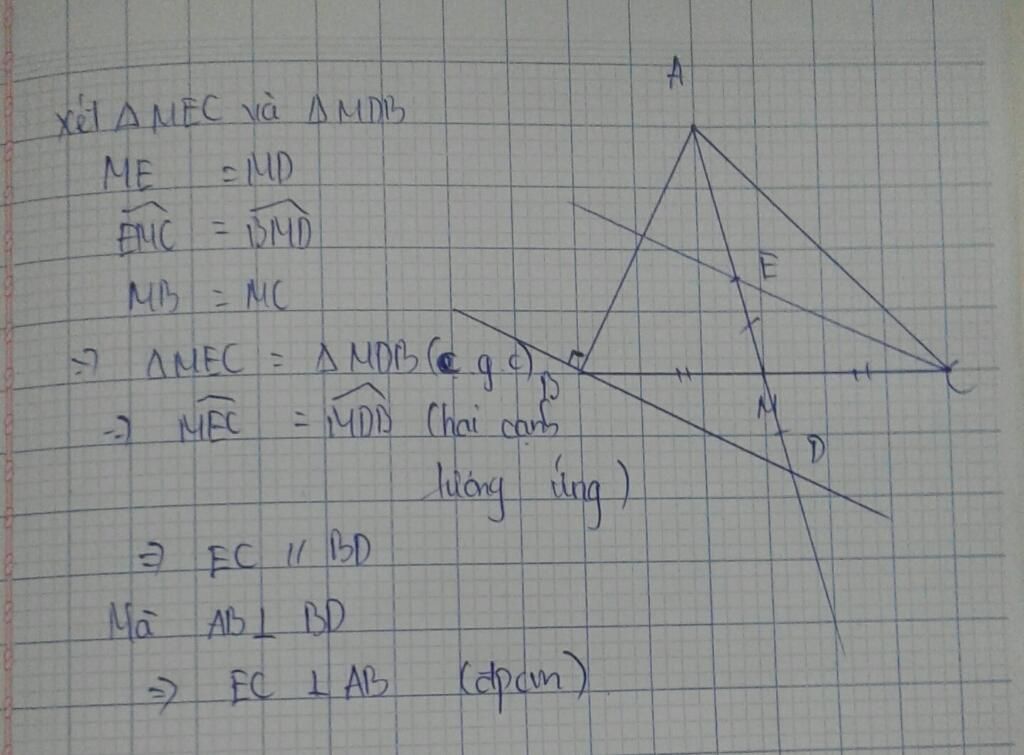 xét Δ MEC và Δ MDB
ME = MD
\widehat{EMC} = \widehat{BMD}
MB = MC
=> Δ MEC = Δ MDB (c g c)
=> \widehat{MEC} = \widehat{MDB} (hai cạnh
tương ứng)
=> EC // BD
Mà AB ⊥ BD
=> EC ⊥ AB (đpcm)
A
E
B
M
C
D